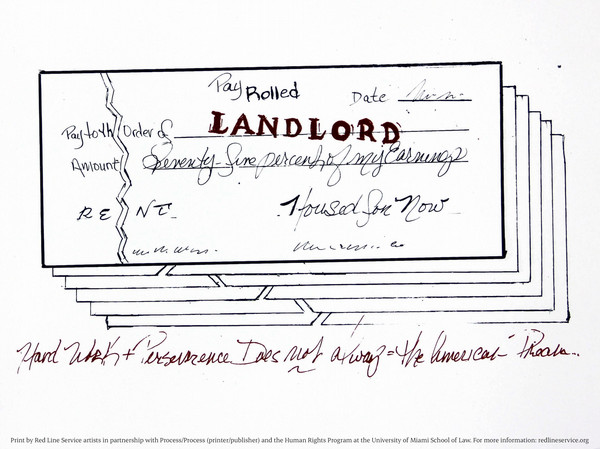 Pay Rolled
Date
Pay to th Order of
LANDLORD
Amount Seventy-five percent of my Earnings
RE NT
Housed for Now
Hard Work + Perserverence Does not always = the American Dream..
Print by Red Line Service artists in partnership with Process/Process (printer/publisher) and the Human Rights Program at the University of Miami School of Law. For more information: redlineservice.org